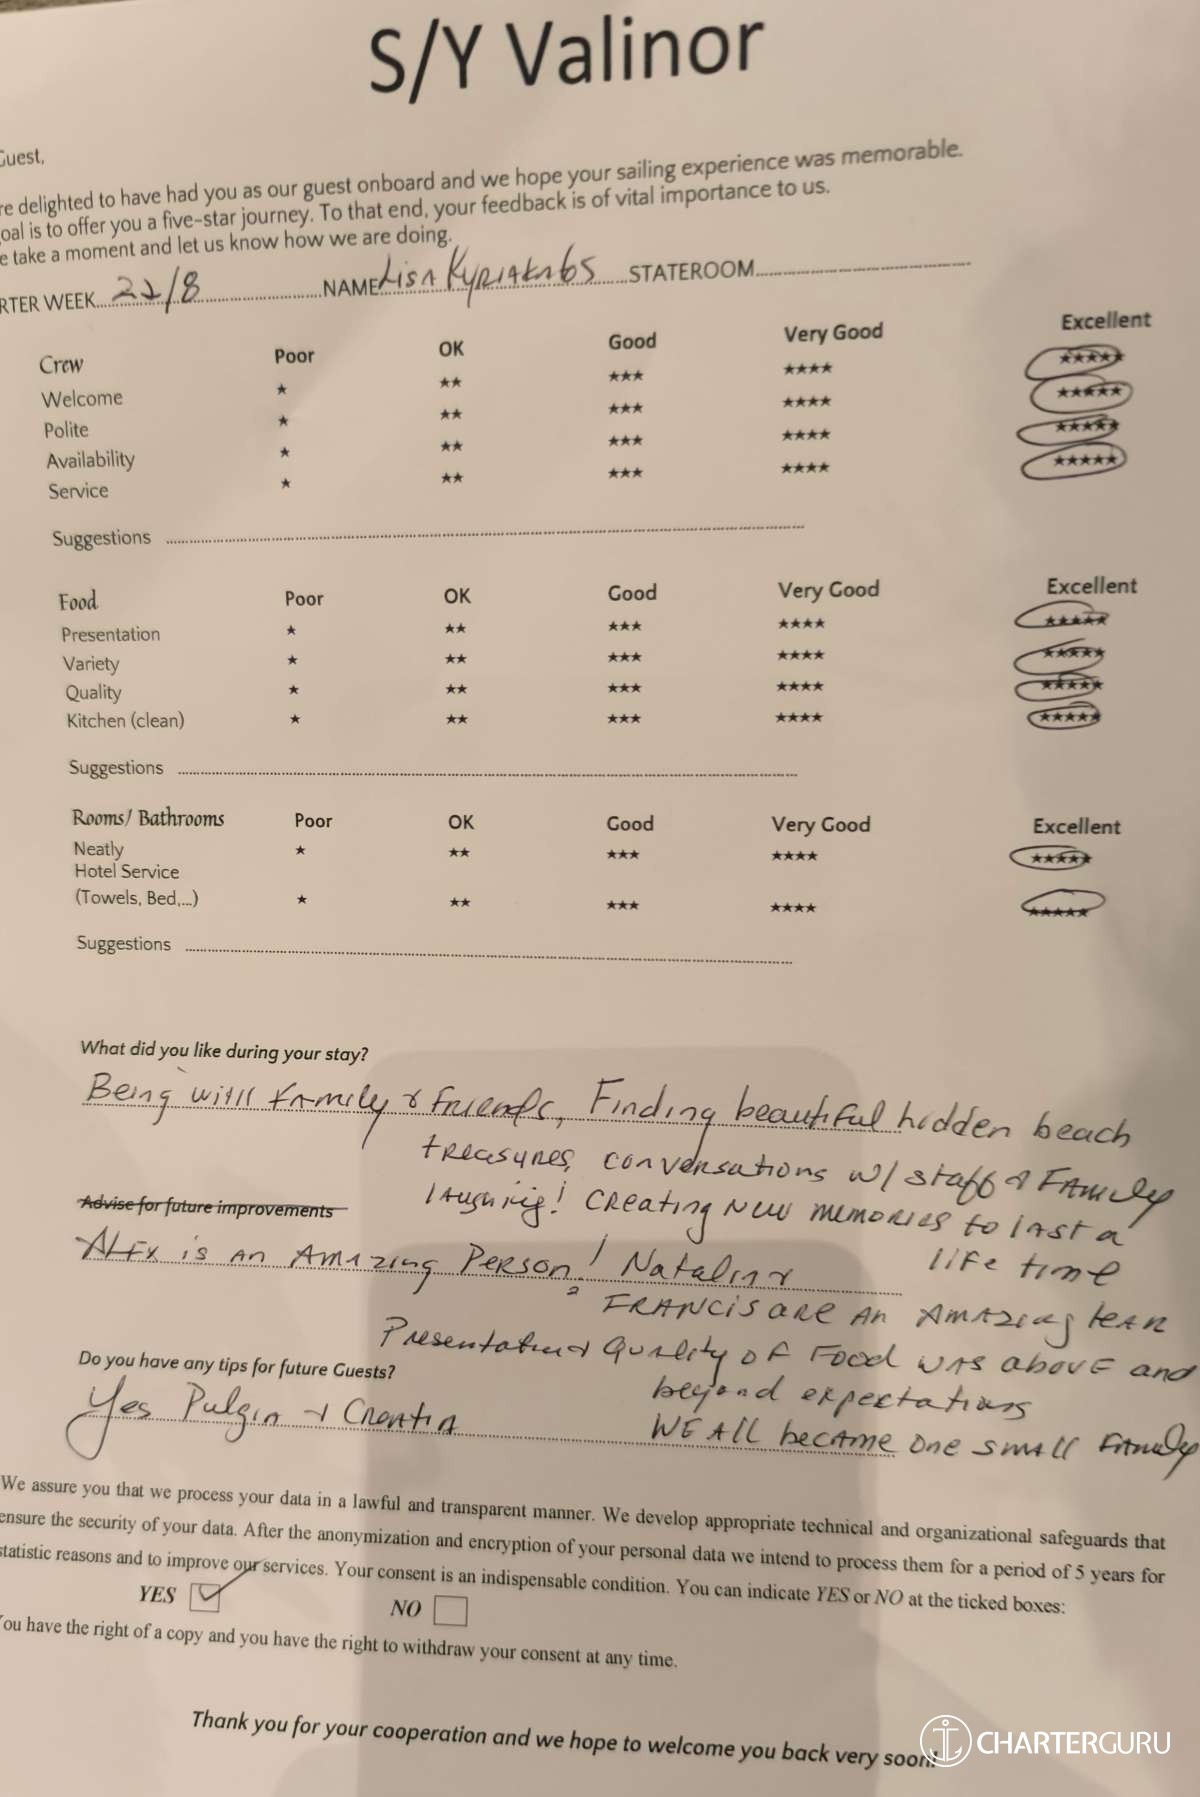 S/Y Valinor
Guest,
re delighted to have had you as our guest onboard and we hope your sailing experience was memorable.
oal is to offer you a five-star journey. To that end, your feedback is of vital importance to us.
e take a moment and let us know how we are doing.
RTER WEEK 22/8 NAME Lisa Kyriakakos STATEROOM
Crew Poor OK Good Very Good Excellent
Welcome ★ ★★ ★★★ ★★★★ ★★★★★
Polite ★ ★★ ★★★ ★★★★ ★★★★★
Availability ★ ★★ ★★★ ★★★★ ★★★★★
Service ★ ★★ ★★★ ★★★★ ★★★★★
Suggestions
Food Poor OK Good Very Good Excellent
Presentation ★ ★★ ★★★ ★★★★ ★★★★★
Variety ★ ★★ ★★★ ★★★★ ★★★★★
Quality ★ ★★ ★★★ ★★★★ ★★★★★
Kitchen (clean) ★ ★★ ★★★ ★★★★ ★★★★★
Suggestions
Rooms/ Bathrooms Poor OK Good Very Good Excellent
Neatly ★ ★★ ★★★ ★★★★ ★★★★★
Hotel Service
(Towels, Bed,...) ★ ★★ ★★★ ★★★★ ★★★★★
Suggestions
What did you like during your stay?
Being with family & friends, Finding beautiful hidden beach
treasures, conversations w/ staff & Family
laughing! Creating New memories to last a
life time
Advise for future improvements
Alex is an Amazing Person! Natalia &
Francis are an Amazing team
Presentation & Quality of Food was above and
beyond expectations
We all became one small Family
Do you have any tips for future Guests?
Yes & Croatia
We assure you that we process your data in a lawful and transparent manner. We develop appropriate technical and organizational safeguards that
ensure the security of your data. After the anonymization and encryption of your personal data we intend to process them for a period of 5 years for
statistic reasons and to improve our services. Your consent is an indispensable condition. You can indicate YES or NO at the ticked boxes:
YES NO
You have the right of a copy and you have the right to withdraw your consent at any time.
Thank you for your cooperation and we hope to welcome you back very soon!
CHARTERGURU